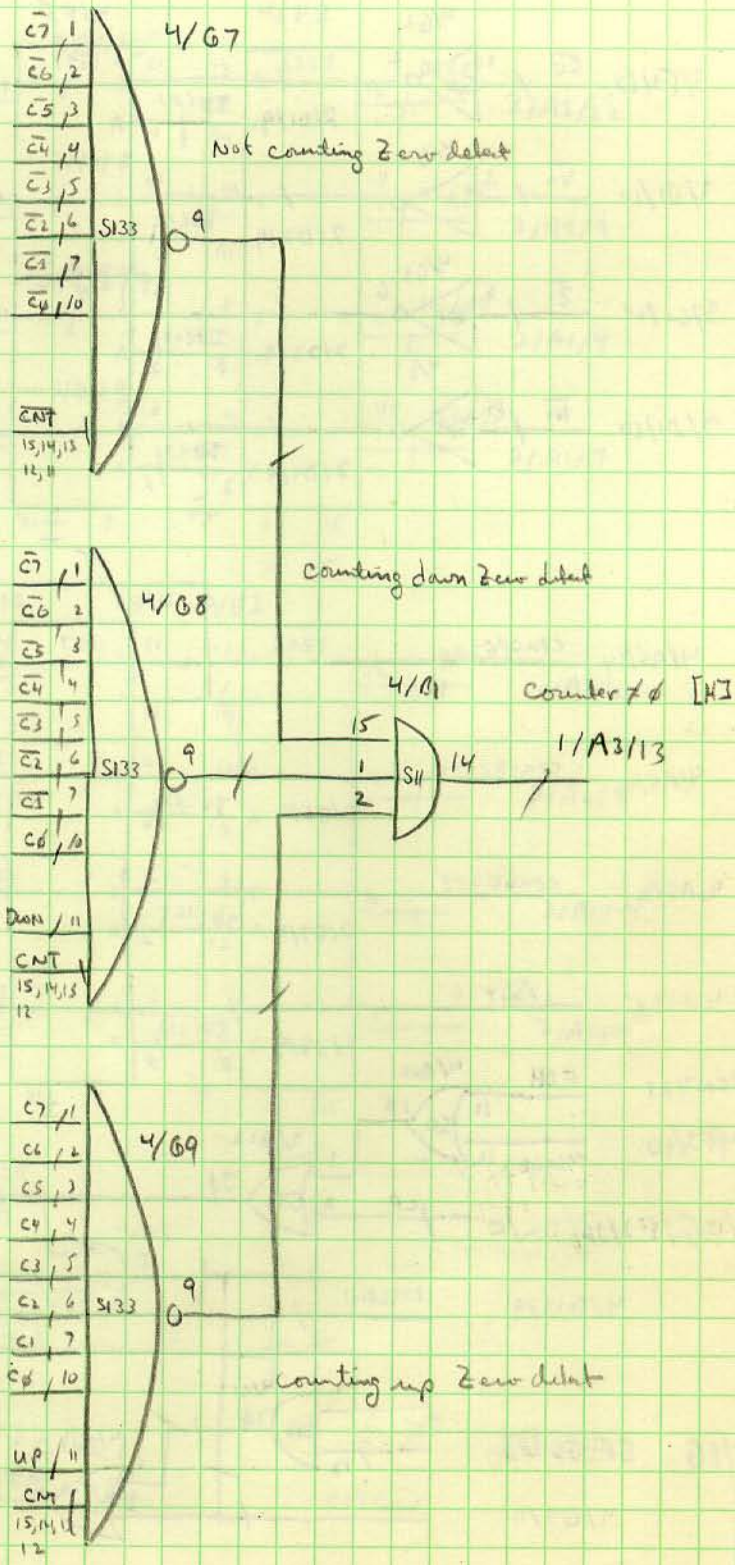 C̅7̅ 1
C̅6̅ 2
C̅5̅ 3
C̅4̅ 4
C̅3̅ 5
C̅2̅ 6
C̅1̅ 7
C̅φ̅ 10
C̅N̅T̅
15,14,13
12,11
4/G7
Not counting Zero detect
S133
9
C̅7̅ 1
C̅6̅ 2
C̅5̅ 3
C̅4̅ 4
C̅3̅ 5
C̅2̅ 6
C̅1̅ 7
Cφ 10
DWN 11
CNT
15,14,13
12
4/G8
counting down Zero detect
S133
9
4/B1
15
1
2
S11
14
counter ≠ φ [H]
1/A3/13
C7 1
C6 2
C5 3
C4 4
C3 5
C2 6
C1 7
Cφ 10
UP 11
CNT
15,14,13
12
4/G9
S133
9
counting up Zero detect